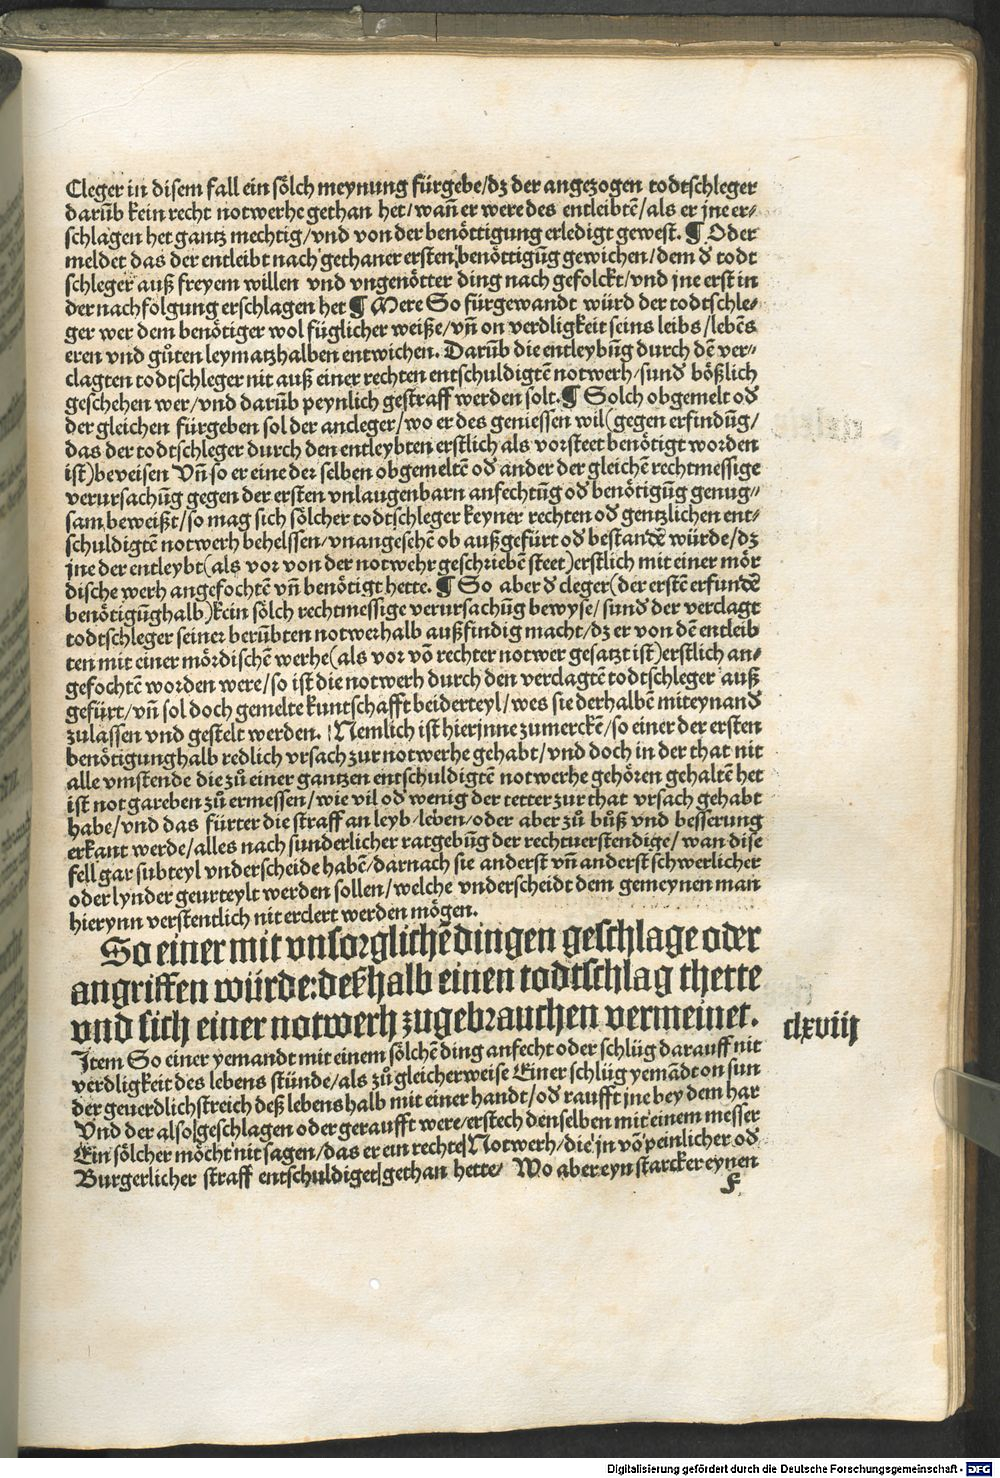 Cleger in disem fall ein sölch meynung fürgebe/dz der angezogen todtschleger
darūb kein recht notwerhe gethan het/wan̄ er were des entleibtē/als er jne er⸗
schlagen het gantz mechtig/vnd von der benöttigung erledigt gewest. ¶ Oder
meldet das der entleibt nach gethaner ersten benöttigūg gewichen/dem d todt
schleger auß freyem willen vnd vngenötter ding nach gefolckt/vnd jne erst in
der nachfolgung erschlagen het ¶ Mere So fürgewandt würd der todtschle⸗
ger wer dem benötiger wol füglicher weiße/vn̄ on verdligkeit seins leibs/lebēs
eren vnd gůten leymatzhalben entwichen. Darūb die entleybūg durch dē ver⸗
clagten todtschleger nit auß einer rechten entschuldigtē notwerh/sund bößlich
geschehen wer/vnd darūb peynlich gestraff werden solt. ¶ Solch obgemelt od
der gleichen fürgeben sol der ancleger/wo er des geniessen wil(gegen erfindūg/
das der todtschleger durch den entleybten erstlich als vorsteet benötigt worden
ist)beveisen Vn̄ so er eine der selben obgemeltē od ander der gleichē rechtmessige
verursachūg gegen der ersten vnlaugenbarn anfechtūg od benötigūg genug⸗
sam beweißt/so mag sich sölcher todtschleger keyner rechten od gentzlichen ent⸗
schuldigtē notwerh behelssen/vnangesehē ob außgefürt od bestandē würde/dz
jne der entleybt(als vor von der notwehr geschriebē steet)erstlich mit einer mör
dische werh angefochtē vn̄ benötigt hette. ¶ So aber d cleger(der erstē erfundē
benötigūghalb)kein sölch rechtmessige verursachūg bewyse/sund der verclagt
todtschleger seiner berūbten notwerhalb außfindig macht/dz er von dē entleib
ten mit einer mördischē werhe(als vor vō rechter notwer gesatzt ist)erstlich an⸗
gefochtē worden were/so ist die notwerh durch den verclagtē todtschleger auß
gefürt/vn̄ sol doch gemelte kuntschafft beiderteyl/wes sie derhalbē miteynand
zulassen vnd gestelt werden. Nemlich ist hierjnne zumerckē/so einer der ersten
benötigunghalb redlich vrsach zur notwerhe gehabt/vnd doch in der that nit
alle vmstende die zů einer gantzen entschuldigtē notwerhe gehören gehaltē het
ist not gareben zů ermessen/wie vil od wenig der tetter zur that vrsach gehabt
habe/vnd das fürter die straff an leyb/leben/oder aber zů bůß vnd besserung
erkant werde/alles nach sunderlicher ratgebūg der rechtuerstendige/wan dise
fell gar subteyl vnderscheide habē/darnach sie anderst vn̄ anderst schwerlicher
oder lynder geurteylt werden sollen/welche vnderscheidt dem gemeynen man
hierynn verstentlich nit erclert werden mögen.
So einer mit vnsorglichē dingen geschlage oder
angriffen würde:deßhalb einen todtschlag thette
vnd sich einer notwerh zugebrauchen vermeinet.
clxviij
Item So einer yemandt mit einem sölchē ding anfecht oder schlüg darauff nit
verdligkeit des lebens stünde/als zů gleicherweise Einer schlüg yemādt on sun
der geuerdlichstreich deß lebenshalb mit einer handt/od raufft jne bey dem har
Vnd der also geschlagen oder geraufft were/erstech denselben mit einem messer
Ein sölcher möcht nit sagen/das er ein rechte Notwerh/die jn vō peinlicher od
Burgerlicher straff entschuldiget gethan hette/ Wo aber eyn starcker eynen
F
Digitalisierung gefördert durch die Deutsche Forschungsgemeinschaft - DFG